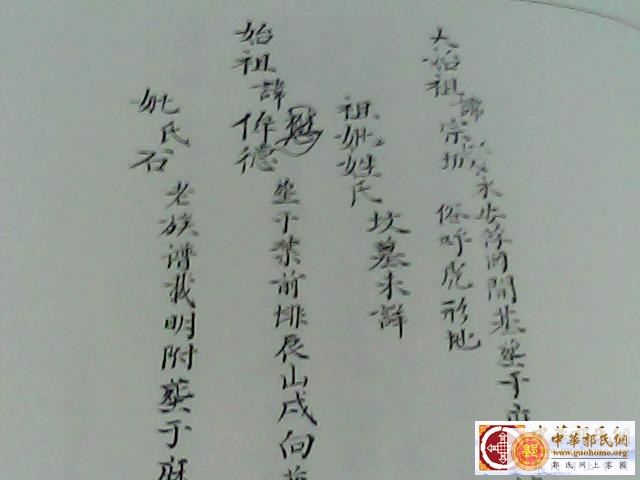 太始祖諱宗城
永安浮西開基塟于
俗呼虎形地
祖妣姓氏
坟墓未詳
始祖諱仲德
塟于寨前排辰山戌向
妣氏石
老族譜載明附塟于
中華郭氏網
www.guohome.org
郭氏网上家園